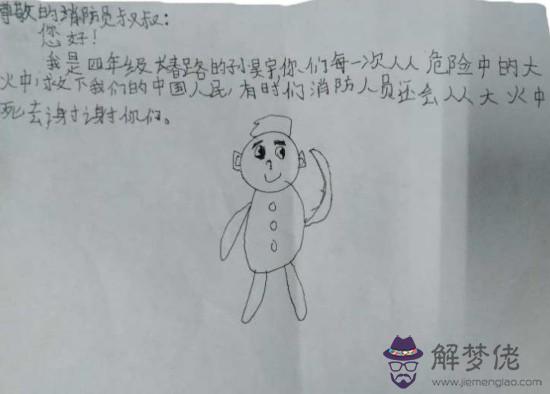 尊敬的消防员叔叔:
您好!
我是四年级大春路的孙昊宇,你们每一次从危险中的大
火中,求下我们的中国人民,有时们消防人员还会从大火中
死去谢谢你们。
解梦佬
www.jiemenglao.com